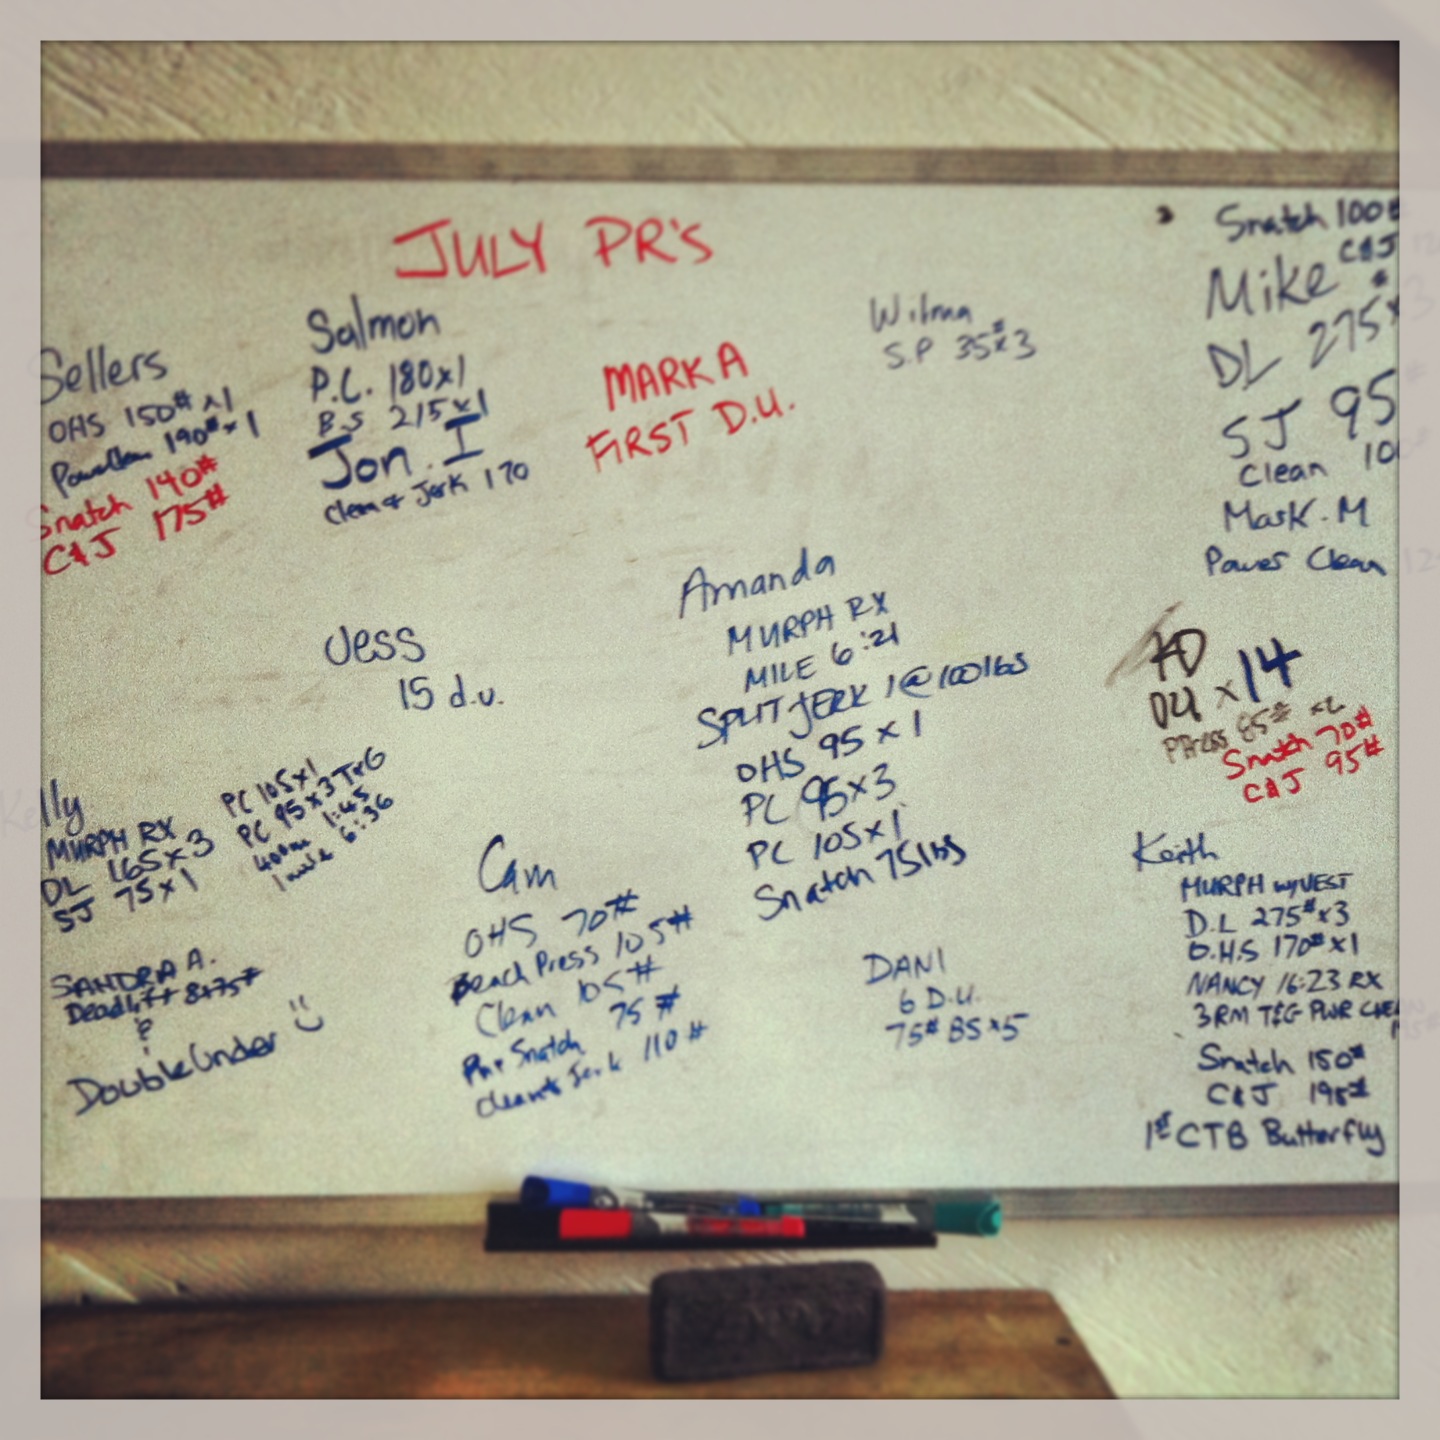 JULY PR'S
Sellers
OHS 150# x1
PowerClean 190# x 1
Snatch 140#
C&J 175#
Salmon
P.C. 180x1
B.S 215x1
Jon. I
Clean & Jerk 170
MARK A
FIRST D.U.
Wilma
S.P 35# x3
Snatch 100#
C&J
Mike
DL 275# x
SJ 95
Clean 10
Mark. M
Power Clean
Jess
15 d.u.
Amanda
MURPH RX
MILE 6:21
SPLIT JERK 1@100lbs
OHS 95 x 1
PC 95x3
PC 105x1
Snatch 75lbs
DU x 14
PPress 85#
Snatch 70#
C&J 95#
lly
MURPH RX
DL 165x3
SJ 75x1
PC 105x1
PC 95x3 T&G
400m 1:45
1 mile 6:36
SANDRA A.
Deadlift
Double Under
Cam
OHS 70#
Bench Press 105#
Clean 105#
Pwr Snatch 75#
Clean & Jerk 110#
DANI
6 D.U.
75# BS x5
Keith
MURPH w/VEST
D.L 275# x3
O.H.S 170# x1
NANCY 16:23 RX
3RM T&G PWR CLEAN
Snatch 150#
C&J 195#
1st CTB Butterfly